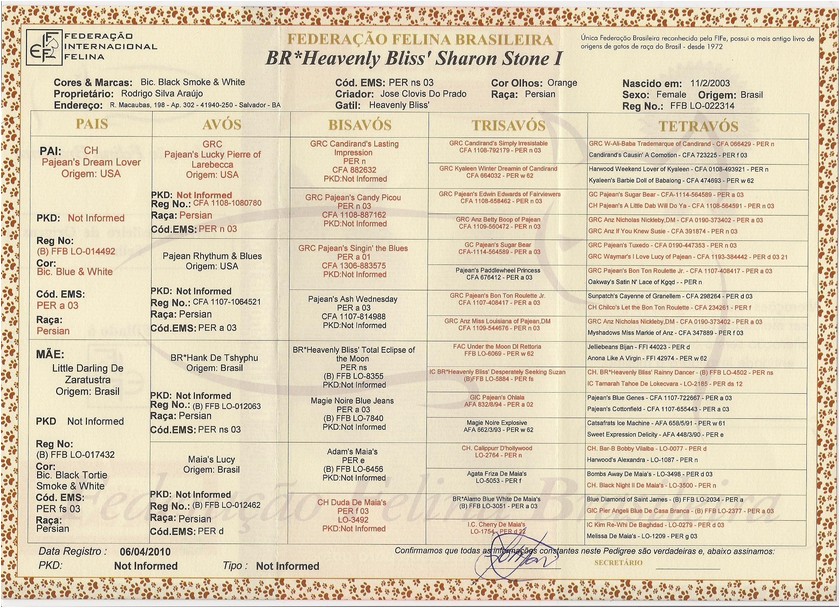 FEDERAÇÃO
INTERNACIONAL
FELINA
FEDERAÇÃO FELINA BRASILEIRA
BR*Heavenly Bliss' Sharon Stone I
Única Federação Brasileira reconhecida pela FIFe, possui o mais antigo livro de
origens de gatos de raça do Brasil - desde 1972
Cores & Marcas: Bic. Black Smoke & White
Cód. EMS: PER ns 03
Cor Olhos: Orange
Nascido em: 11/2/2003
Proprietário: Rodrigo Silva Araújo
Criador: Jose Clovis Do Prado
Raça: Persian
Sexo: Female Origem: Brasil
Endereço: R. Macaubas, 198 - Ap. 302 - 41940-250 - Salvador - BA
Gatil: Heavenly Bliss'
Reg No.: FFB LO-022314
PAIS
AVÓS
BISAVÓS
TRISAVÓS
TETRAVÓS
PAI: CH
Pajean's Dream Lover
Origem: USA
PKD: Not Informed
Reg No:
(B) FFB LO-014492
Cor:
Bic. Blue & White
Cód. EMS:
PER a 03
Raça:
Persian
MÃE:
Little Darling De
Zaratustra
Origem: Brasil
PKD Not Informed
Reg No:
(B) FFB LO-017432
Cor:
Bic. Black Tortie
Smoke & White
Cód. EMS:
PER fs 03
Raça:
Persian
GRC
Pajean's Lucky Pierre of
Larebecca
Origem: USA
PKD: Not Informed
Reg No.: CFA 1108-1080780
Raça: Persian
Cód.EMS: PER n 03
Pajean Rhythum & Blues
Origem: USA
PKD: Not Informed
Reg No.: CFA 1107-1064521
Raça: Persian
Cód.EMS: PER a 03
BR*Hank De Tshyphu
Origem: Brasil
PKD: Not Informed
Reg No.: (B) FFB LO-012063
Raça: Persian
Cód.EMS: PER ns 03
Maia's Lucy
Origem: Brasil
PKD: Not Informed
Reg No.: (B) FFB LO-012462
Raça: Persian
Cód.EMS: PER d
GRC Candirand's Lasting
Impression
PER n
CFA 882632
PKD:Not Informed
GRC Pajean's Candy Picou
PER n 03
CFA 1108-887162
PKD:Not Informed
GRC Pajean's Singin' the Blues
PER a 01
CFA 1306-883575
PKD:Not Informed
Pajean's Ash Wednesday
PER a 03
CFA 1107-814988
PKD:Not Informed
BR*Heavenly Bliss' Total Eclipse of
the Moon
PER ns
(B) FFB LO-8355
PKD:Not Informed
Magie Noire Blue Jeans
PER a 03
(B) FFB LO-7840
PKD:Not Informed
Adam's Maia's
PER e
(B) FFB LO-6456
PKD:Not Informed
CH Duda De Maia's
PER f 03
LO-3492
PKD:Not Informed
GRC Candirand's Simply Irresistable
CFA 1108-792179 - PER n 03
GRC Kyaleen Winter Dreamin of Candirand
CFA 664032 - PER w 62
GRC Pajean's Edwin Edwards of Fairviewers
CFA 1108-658462 - PER n 03
GRC Anz Betty Boop of Pajean
CFA 1109-580472 - PER n 03
GC Pajean's Sugar Bear
CFA-1114-564589 - PER a 03
Pajean's Paddlewheel Princess
CFA 676412 - PER a 03
GRC Pajean's Bon Ton Roulette Jr.
CFA 1107-408417 - PER a 03
GRC Anz Miss Louisiana of Pejean,DM
CFA 1109-544676 - PER n 03
FAC Under the Moon Di Rettoria
FFB LO-6069 - PER w 62
IC BR*Heavenly Bliss' Desperately Seeking Suzan
(B)FFB LO-5884 - PER fs
GIC Pajean's Ohlala
AFA 832/8/94 - PER a 02
Magie Noire Explosive
AFA 662/3/93 - PER w 61
CH. Calippurr D'hollywood
LO-2764 - PER n
Agata Friza De Maia's
LO-5053 - PER f
BR*Alamo Blue White De Maia's
(B) FFB LO-3051 - PER a 03
I.C. Cherry De Maia's
LO-1754 - PER d 22
GRC W-Ali-Baba Trademarque of Candirand - CFA 066429 - PER n
Candirand's Causin' A Comotion - CFA 723225 - PER f 03
Harwood Weekend Lover of Kyaleen - CFA 0108-493921 - PER n
Kyaleen's Barbie Doll of Babalong - CFA 474693 - PER w 62
GC Pajean's Sugar Bear - CFA-1114-564589 - PER a 03
CH Pajean's A Little Dab Will Do Ya - CFA 1108-564591 - PER n 03
GRC Anz Nicholas Nickleby,DM - CFA 0190-373402 - PER a 03
GRC Anz If You Knew Susie - CFA 391874 - PER n 03
GRC Pajean's Tuxedo - CFA 0190-447353 - PER n 03
GRC Waymar's I Love Lucy of Pajean - CFA 1193-384442 - PER d 03 21
GRC Pajean's Bon Ton Roulette Jr. - CFA 1107-408417 - PER a 03
Oakway's Satin N' Lace of Kgqd - - PER n
Sunpatch's Cayenne of Granellem - CFA 298264 - PER d 03
CH Chilco's Let the Bon Ton Roulette - CFA 234261 - PER f
GRC Anz Nicholas Nickleby,DM - CFA 0190-373402 - PER a 03
Myshadows Miss Markie of Anz - CFA 347889 - PER f 03
Jelliebeans Bijan - FFI 44023 - PER d
Anona Like A Virgin - FFI 42974 - PER w 62
CH. BR*Heavenly Bliss' Rainny Dancer - (B) FFB LO-4502 - PER ns
IC Tamarah Tahoe De Lokecvara - LO-2165 - PER ds 12
Pajean's Blue Genes - CFA 1107-722667 - PER a 03
Pajean's Cottonfield - CFA 1107-655443 - PER a 03
Catsafrats Ice Machine - AFA 658/5/91 - PER w 61
Sweet Expression Delicity - AFA 448/3/90 - PER e
CH. Bar-B Bobby Vilalba - LO-0077 - PER d
Harwood's Alexandra - LO-1087 - PER n
Bombs Away De Maia's - LO-3498 - PER d 03
CH. Black Night II De Maia's - LO-3500 - PER n
Blue Diamond of Saint James - (B) FFB LO-2034 - PER a
GIC Pier Angeli Blue De Casa Branca - (B) FFB LO-2377 - PER a 03
IC Kim Re-Whi De Baghdad - LO-0279 - PER d 03
Melissa De Maia's - LO-1209 - PER g 03
Federação Felina Brasileira
Data Registro : 06/04/2010
Confirmamos que todas as informações constantes neste Pedigree são verdadeiras e, abaixo assinamos:
PKD: Not Informed Tipo : Not Informed
SECRETÁRIO